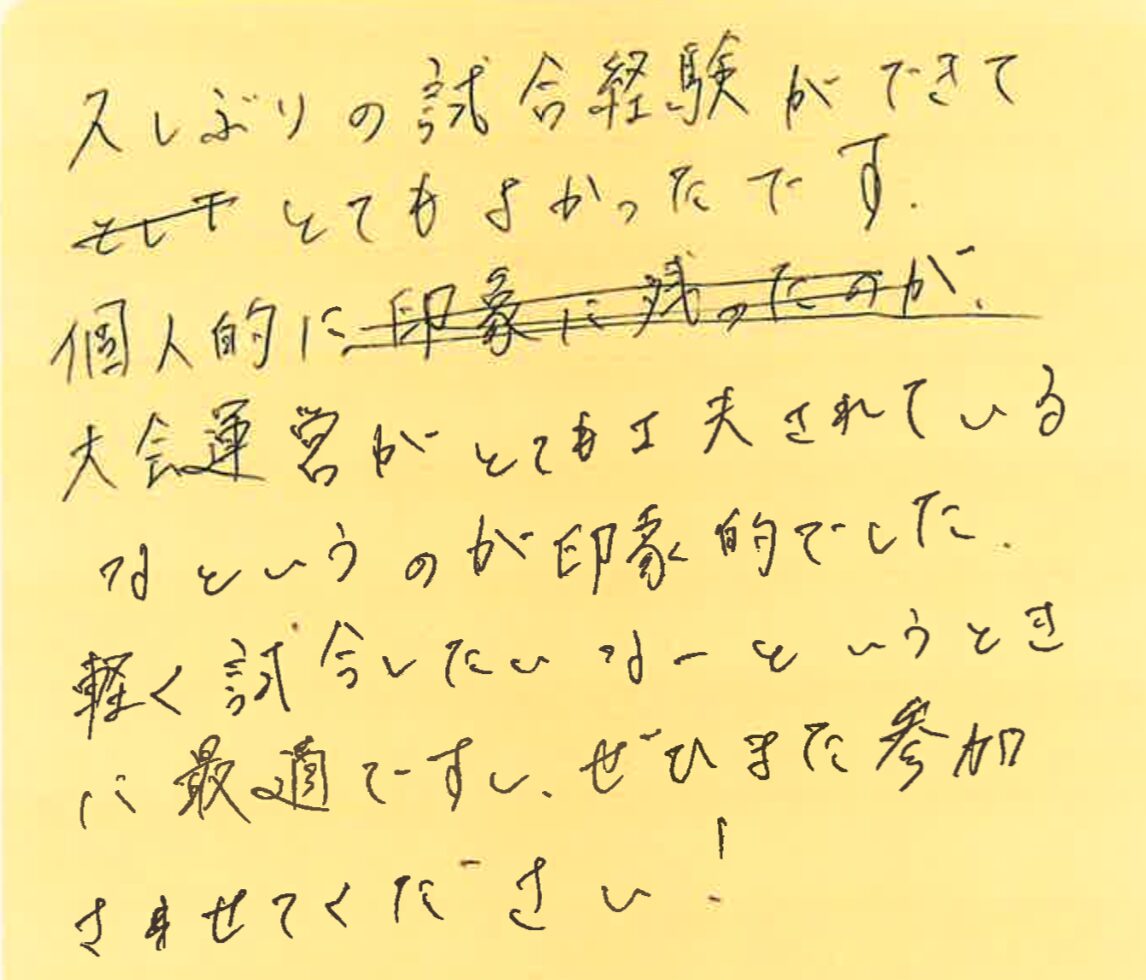 久しぶりの試合経験ができて
そして とてもよかったです.
個人的に 印象に残ったのが、
大会運営がとても工夫されている
なというのが印象的でした.
軽く試合したいなーというとき
に最適ですし、ぜひまた参加
させてください!